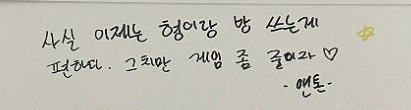 사실 이제는 형이랑 방 쓰는게
편하다. 그치만 게임 좀 줄이자 ♡
- 앤톤 -